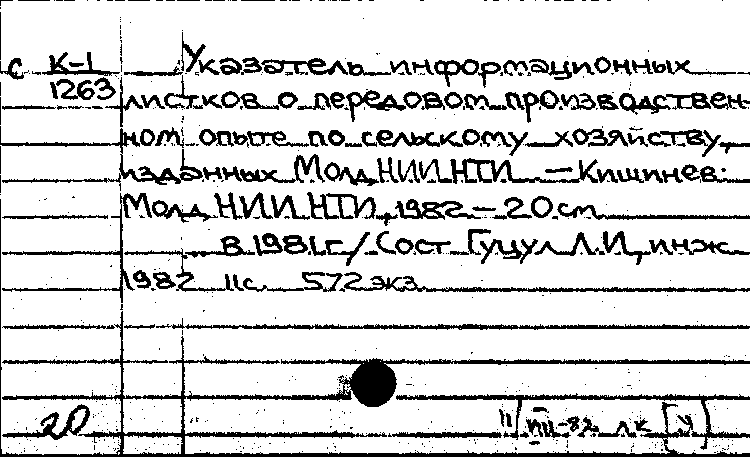 с К-1 Указатель информационных
1263 листков о передовом производствен-
ном опыте по сельскому хозяйству,
изданных МолдНИИНТИ. — Кишинев:
МолдНИИНТИ, 1982 – 20 см
в 1981 г. / Сост. Гуцул Л.И., инж.
1982 11 с. 572 экз.
20 11/VIII-82 лк [У]